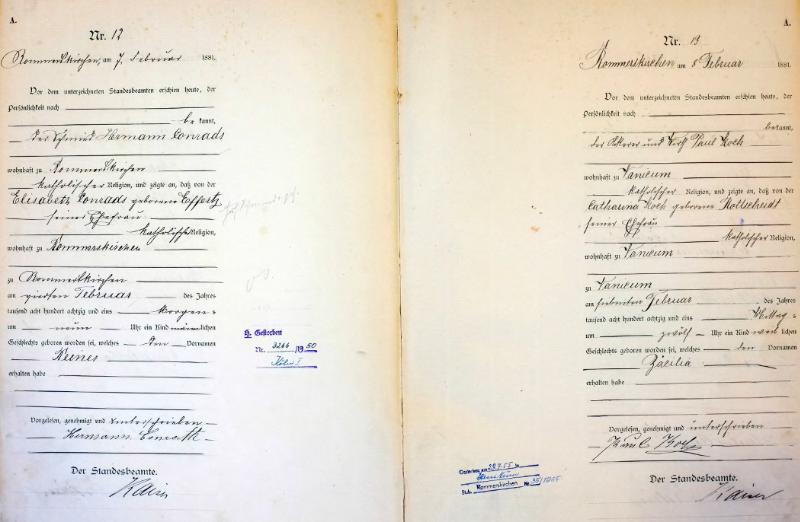 A.
Nr. 12
Rommerskirchen, am 7. Februar 1881.
Vor dem unterzeichneten Standesbeamten erschien heute, der
Persönlichkeit nach
bekannt,
der Schmied Hermann Conrads
wohnhaft zu Rommerskirchen
katholischer Religion, und zeigte an, daß von der
Elisabeth Conrads geborene Effertz
seiner Ehefrau
katholischer Religion,
wohnhaft zu Rommerskirchen
zu Rommerskirchen
am vierten Februar des Jahres
tausend acht hundert achtzig und eins Morgens
um neun Uhr ein Kind männlichen
Geschlechts geboren worden sei, welches den Vornamen
erhalten habe
Vorgelesen, genehmigt und unterschrieben
Hermann Conrads
Der Standesbeamte.
Kaiser
H. Gestorben
Nr. 3266/1950
Köln I
A.
Nr. 13
Rommerskirchen am 8 Februar 1881.
Vor dem unterzeichneten Standesbeamten erschien heute, der
Persönlichkeit nach
bekannt,
der Ackerer und Wirth Paul Koch
wohnhaft zu Vanikum
katholischer Religion, und zeigte an, daß von der
Catharina Koch geborene Holtscheidt
seiner Ehefrau
katholischer Religion,
wohnhaft zu Vanikum
zu Vanikum
am siebenten Februar des Jahres
tausend acht hundert achtzig und eins Mittag
um zwölf Uhr ein Kind weiblichen
Geschlechts geboren worden sei, welches den Vornamen
Cäcilia
erhalten habe
Vorgelesen, genehmigt und unterschrieben
Paul Koch
Der Standesbeamte.
Kaiser
Rommerskirchen